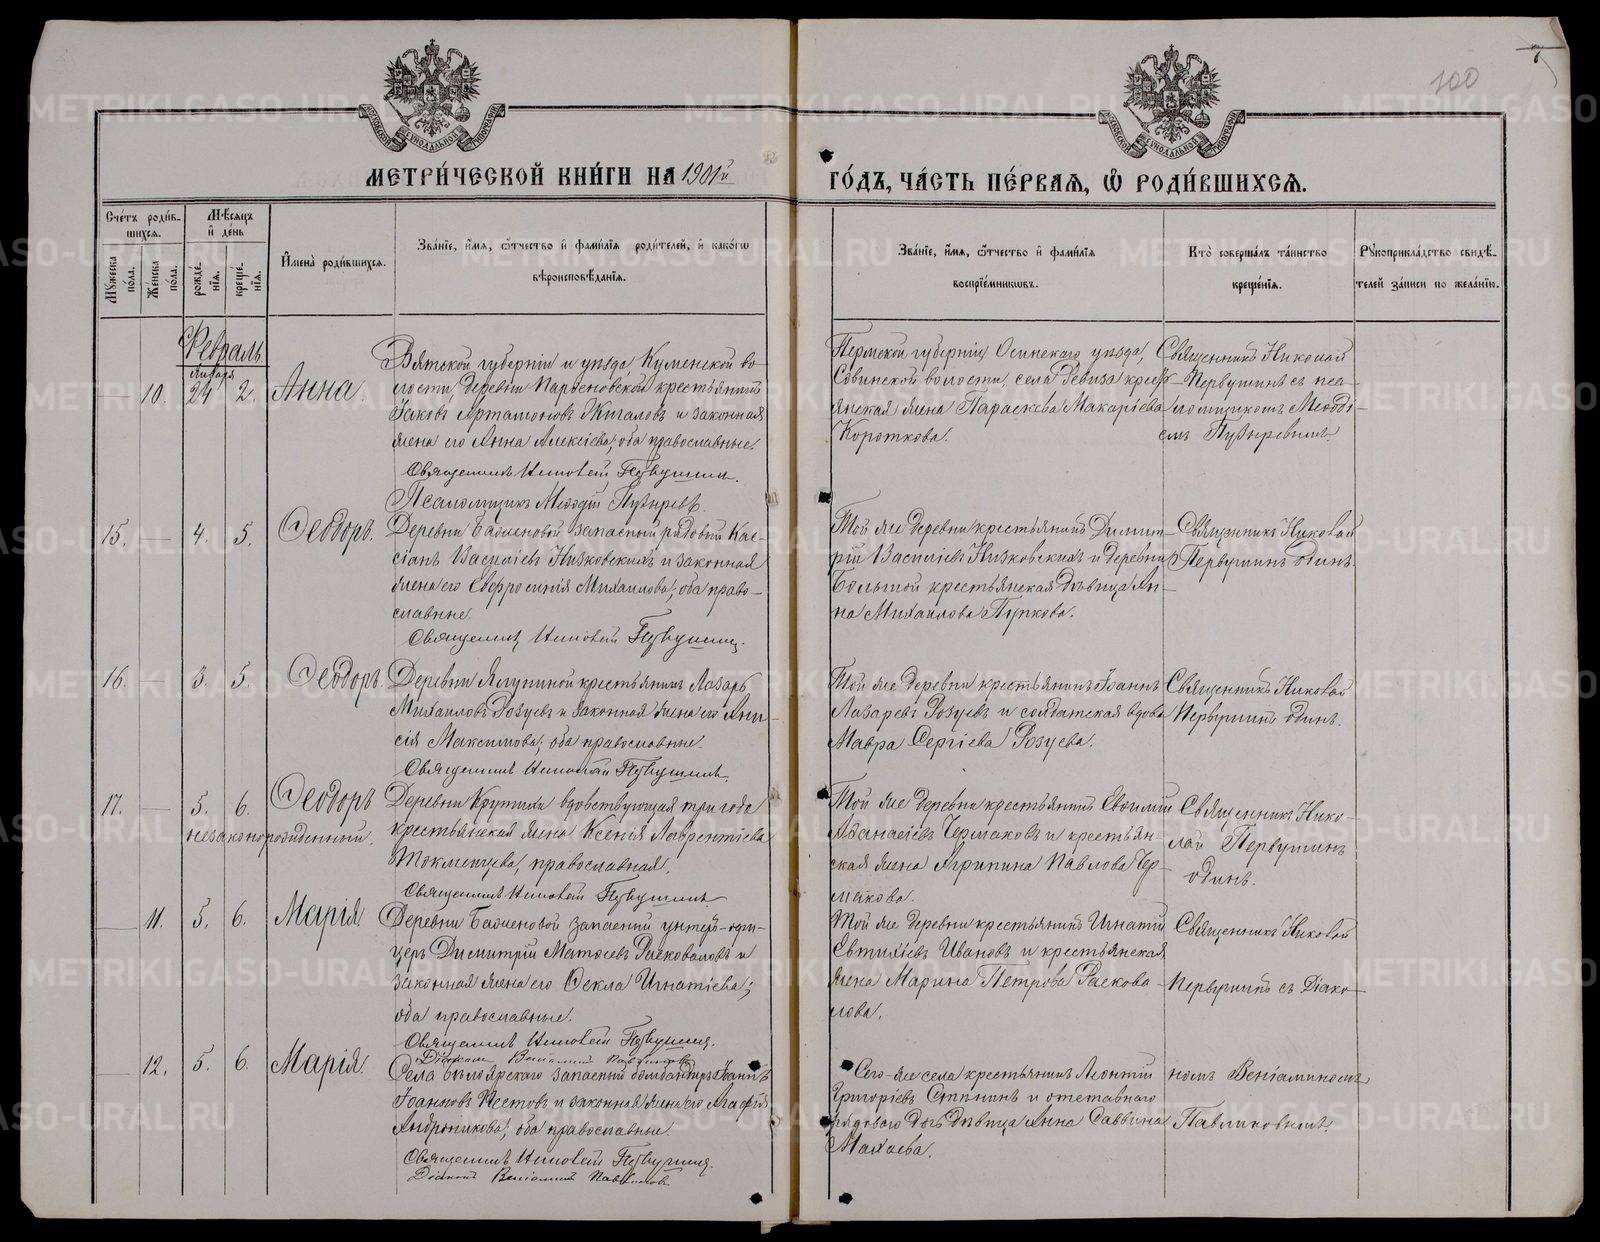 100
МЕТРИ́ЧЕСКОЙ КНИ́ГИ НА 1901й ГО́ДЪ, ЧА́СТЬ ПЕ́РВАЯ, Ѽ РОДИ́ВШИХСЯ.
Сче́тъ роди́вшихся.
Мѣ́сяцъ и҆ де́нь
И҆мена̀ роди́вшихся.
Зва́нїе, и҆́мя, ѻ҆́тчество и҆ фами́лїя роди́телей, и҆ како́гѡ вѣроисповѣ́данїя.
Зва́нїе, и҆́мя, ѻ҆́тчество и҆ фами́лїя воспрїе́мникѡвъ.
Кто̀ соверша́лъ та́инство креще́нїя.
Рꙋкоприкла́дство свидѣ́телей за́писи по жела́нїю.
Мꙋ́жеска по́ла.
Же́нска по́ла.
рожде́нїя.
креще́нїя.
Февраль.
Января
— 10. 24 2. Анна.
Вятской губерніи и уѣзда, Куменской во-
лости, деревни Парѳеновской крестьянинъ
Іаковъ Артамоновъ Жигаловъ и законная
жена его Анна Алексіева; оба православные.
Священникъ Николай Первушинъ.
Псаломщикъ Меѳодій Пузыревъ.
Пермской губерніи Осинскаго уѣзда,
Савинской волости, села Ревиза крест-
янская жена Параскева Макаріева
Короткова.
Священникъ Николай
Первушинъ съ пса-
ломщикомъ Меѳоді-
емъ Пузыревымъ.
15. — 4. 5. Ѳеодоръ.
Деревни Баженовой запасный рядовой Кас-
сіанъ Василіевъ Низковскихъ и законная
жена его Евфросинія Михаилова; оба право-
славные.
Священникъ Николай Первушинъ.
Той же деревни крестьянинъ Димит-
рій Василіевъ Низковскихъ и деревни
Большой крестьянская дѣвица Ан-
на Михаилова Пупкова.
Священникъ Николай
Первушинъ одинъ.
16. — 3. 5. Ѳеодоръ.
Деревни Ялуниной крестьянинъ Лазарь
Михаиловъ Розуевъ и законная жена его Ани-
сія Максимова; оба православные.
Священникъ Николай Первушинъ.
Той же деревни крестьянинъ Іоаннъ
Лазаревъ Розуевъ и солдатская вдова
Мавра Сергіева Розуева.
Священникъ Николай
Первушинъ одинъ.
17. — 5. 6. Ѳеодоръ
незаконорожденный.
Деревни Крутихи вдовствующая три года
крестьянская жена Ксенія Лаврентіева
Токменцева, православная.
Священникъ Николай Первушинъ.
Той же деревни крестьянинъ Евѳимій
Аѳанасіевъ Чермаковъ и крестьян-
ская жена Агрипина Павлова Чер-
макова.
Священникъ Нико-
лай Первушинъ
одинъ.
— 11. 5. 6. Марія.
Деревни Баженовой запасный унтеръ-офи-
церъ Димитрій Матѳіевъ Расковаловъ и
законная жена его Ѳекла Игнатіева;
оба православные.
Священникъ Николай Первушинъ.
Діаконъ Веніаминъ Павлиновъ
Той же деревни крестьянинъ Игнатій
Евтихіевъ Ивановъ и крестьянская
жена Марина Петрова Раскова-
лова.
Священникъ Николай
Первушинъ съ Діако-
— 12. 5. 6. Марія.
Села Белоярскаго запасный бомбандиръ Іоаннъ
Іоанновъ Пестовъ и законная жена его Агафія
Андроникова; оба православные.
Священникъ Николай Первушинъ.
Діаконъ Веніаминъ Павлиновъ
Сего-же села крестьянинъ Леонтій
Григоріевъ Стѣнинъ и отставнаго
рядоваго дочь дѣвица Анна Саввина
Махаева.
номъ Веніаминомъ
Павлиновымъ.
METRIKI.GASO-URAL.RU